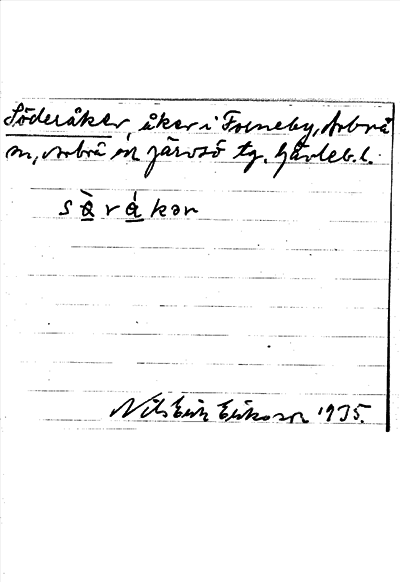 Söderåker, åker i Forneby, Arbrå
sn, Arbrå o Järvsö tg. Gävleb. l.
sὰrákər
Nils Erik Eriksson 1935.